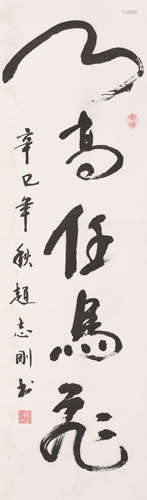 天高任鳥飛
辛巳年秋趙志剛書